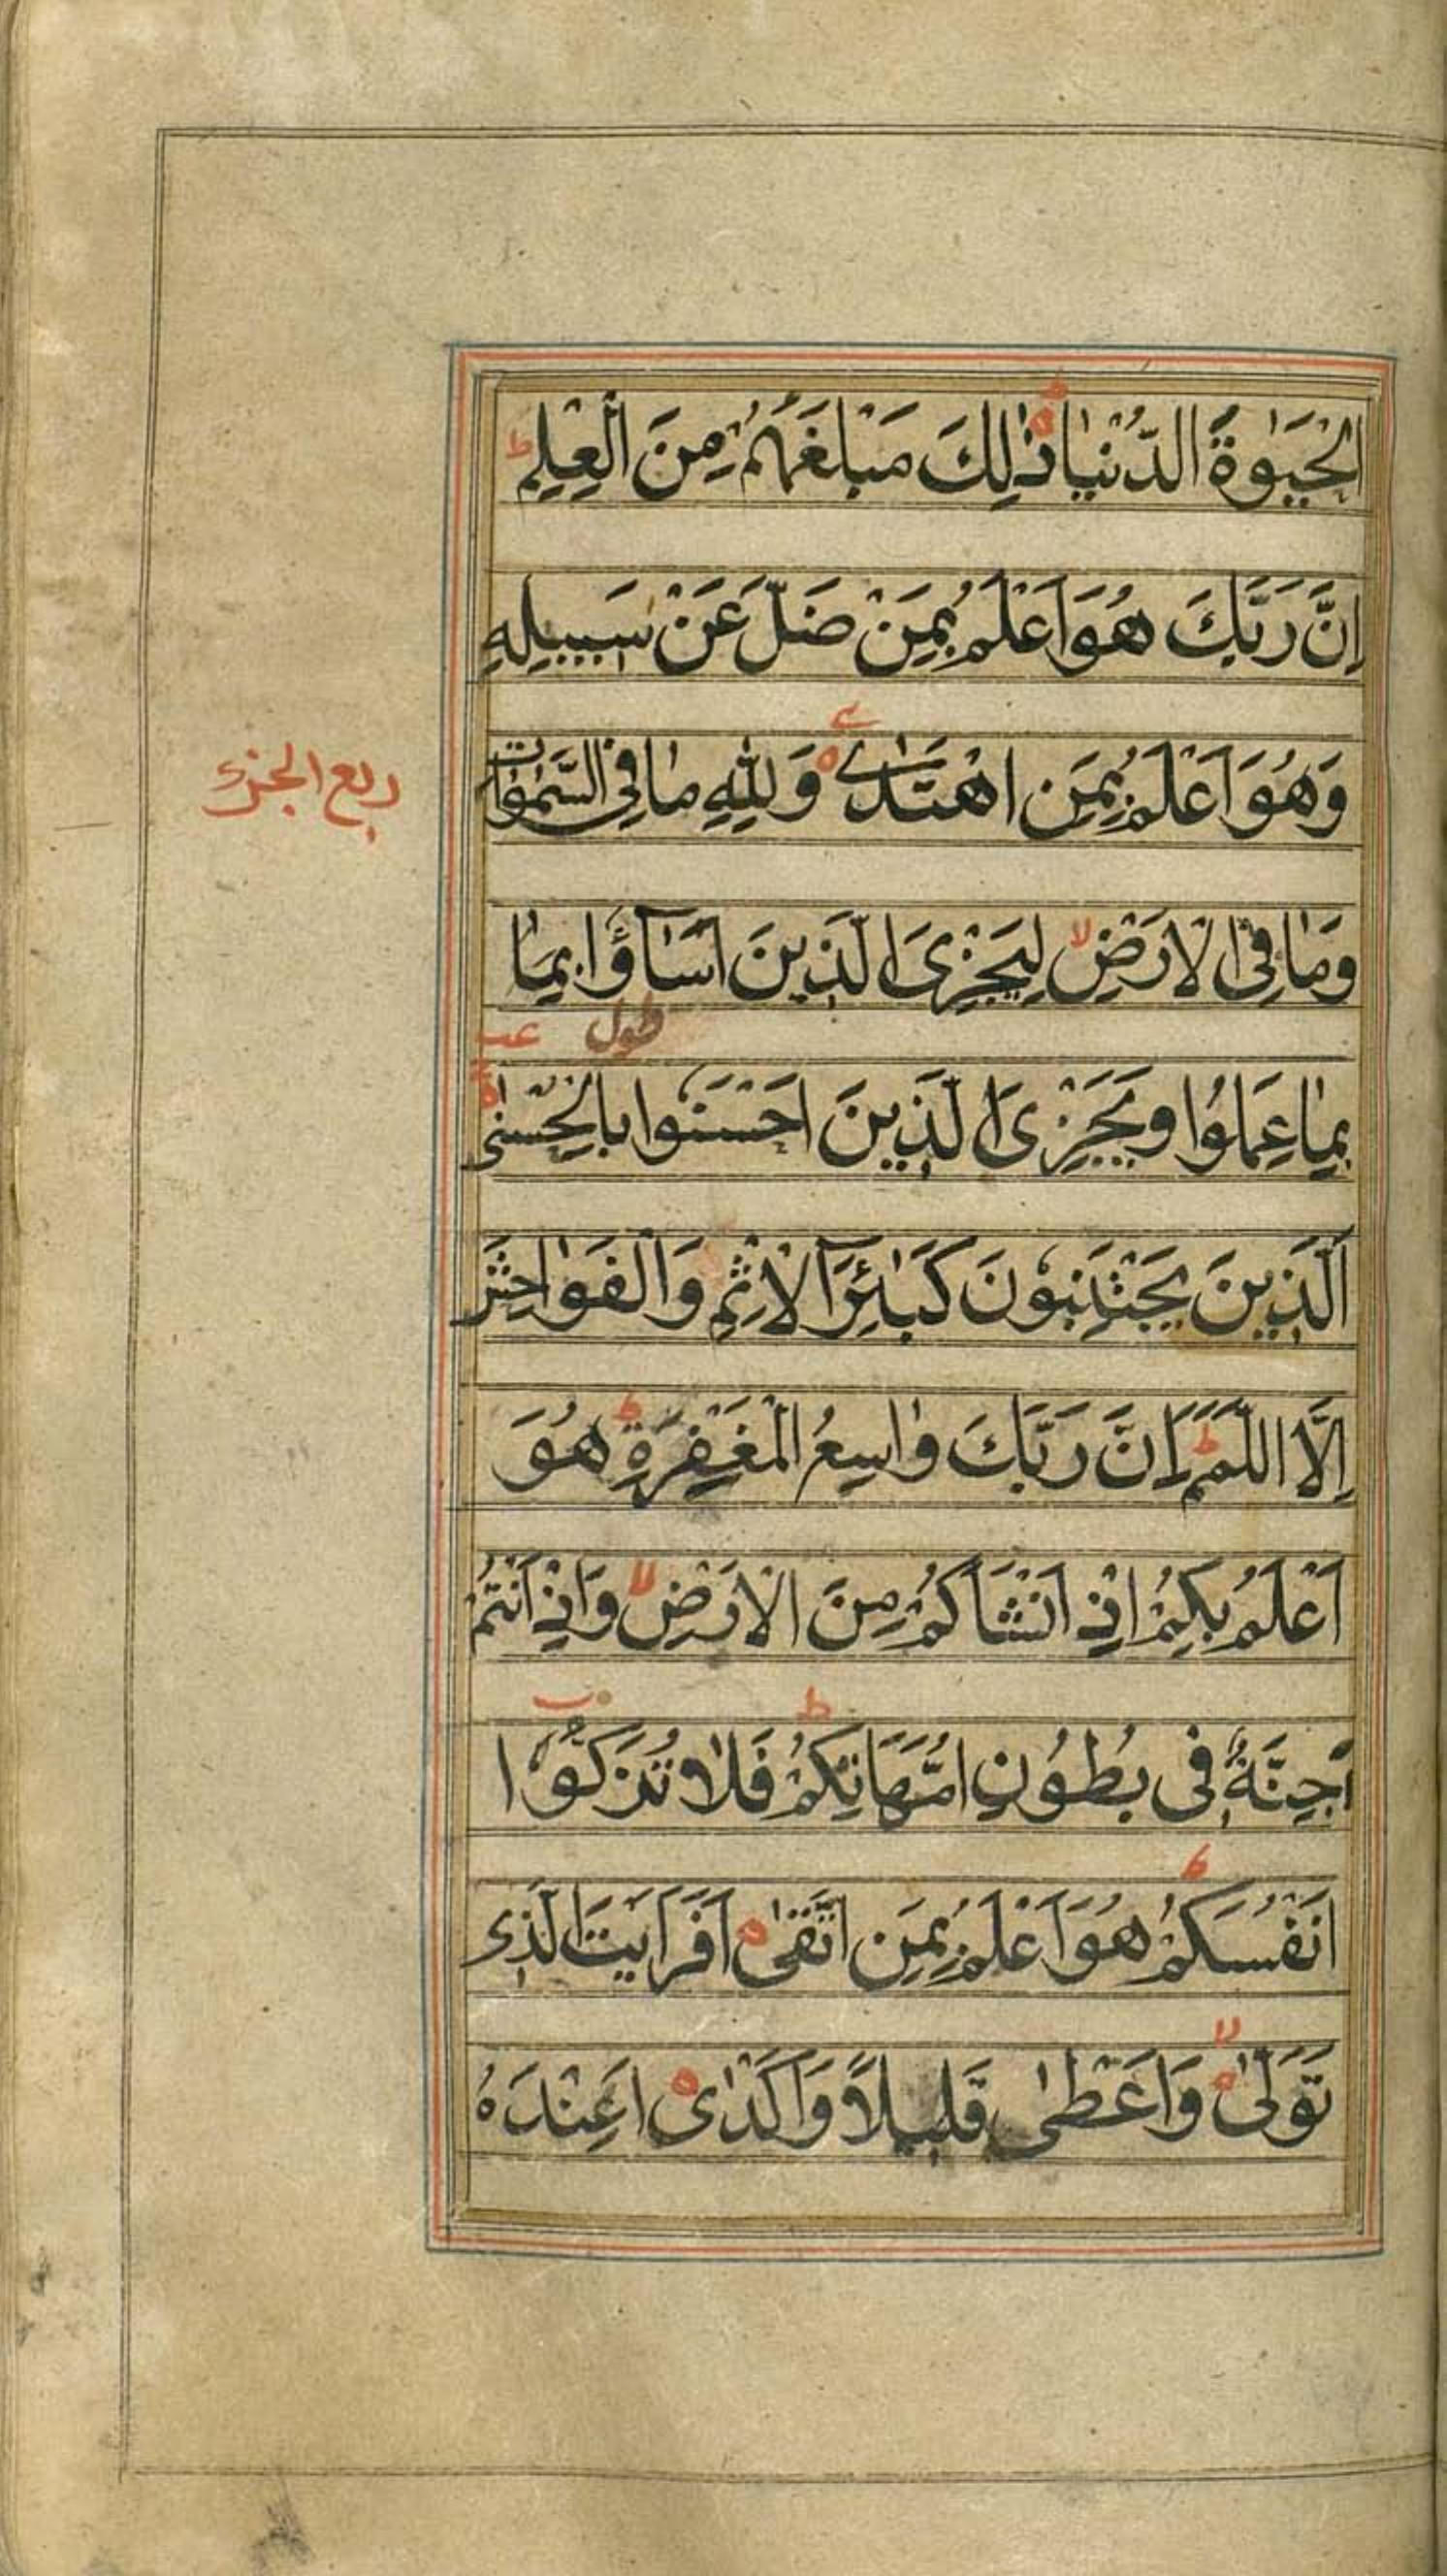 الْحَيٰوةَ الدُّنْيَا ذٰلِكَ مَبْلَغُهُمْ مِنَ الْعِلْمِ ط
اِنَّ رَبَّكَ هُوَ اَعْلَمُ بِمَنْ ضَلَّ عَنْ سَبِيلِهِ
وَهُوَ اَعْلَمُ بِمَنِ اهْتَدٰى وَلِلّٰهِ مَا فِي السَّمٰوَاتِ
ربع الجزء
وَمَا فِي الْاَرْضِ لا لِيَجْزِيَ الَّذِينَ اَسَآؤُا بِمَا
طول عب
بِمَا عَمِلُوا وَيَجْزِيَ الَّذِينَ اَحْسَنُوا بِالْحُسْنٰى
اَلَّذِينَ يَجْتَنِبُونَ كَبٰئِرَ الْاِثْمِ وَالْفَوَاحِشَ
اِلَّا اللَّمَمَ ط اِنَّ رَبَّكَ وَاسِعُ الْمَغْفِرَةِ ط هُوَ
اَعْلَمُ بِكُمْ اِذْ اَنْشَاَكُمْ مِنَ الْاَرْضِ لا وَاِذْ اَنْتُمْ
اَجِنَّةٌ فِي بُطُونِ اُمَّهَاتِكُمْ ط فَلَا تُزَكُّوا
اَنْفُسَكُمْ ط هُوَ اَعْلَمُ بِمَنِ اتَّقٰى اَفَرَاَيْتَ الَّذِي
تَوَلّٰى لا وَاَعْطٰى قَلِيلًا وَاَكْدٰى اَعِنْدَهُ